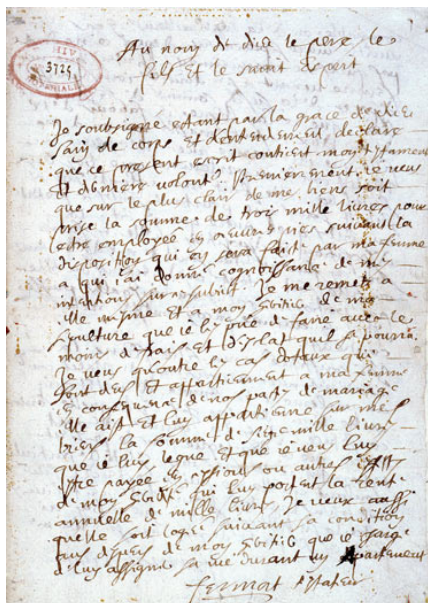 3725
Au nom de dieu le pere le
fils et le sainct esprit
Je soubsigne estant par la grace de dieu
sain de corps et d'entendement, declare
que ce present escrit contient mon testament
et derniere volonté. Premierement je veux
que sur le plus clair de mes biens soit
prise la somme de trois mille livres pour
estre employée en œuvres pies suivant la
disposition qui en sera faite par ma femme
a qui j'ai donné connoissance de mes
intentions sur ce subiect. Je me remets a
elle mesme et a mon heritier de ma
sepulture que je les prie de faire avec le
moins de frais et d'esclat qu'il se pourra.
Je veux qu'outre les cas dotaux qui
sont deus et appartiennent a ma femme
en consequence de nos pactes de mariage
elle aist et luy appartienne sur mes
biens la somme de seize mille livres
que je luy legue et que je veux luy
estre payée en pensions ou autres effets
de mon heredité qui luy portent la rente
annuelle de mille livres. Je veux aussi
qu'elle soit logée suivant sa condition
aux despens de mon heritier que je charge
d'luy assigner sa vie durant un apartement
Fermat testateur